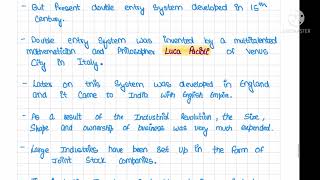 - But Present double entry System developed in 15th
Century.
- Double entry System was invented by a multitalented
mathematician and Philosopher Luca Pacioli of Venus
City in Italy.
- Later on this System was developed in England
and it Came to India with English Empire.
- As a result of the Industrial Revolution, the Size,
Shape and ownership of business was very much expanded.
- Large Industries have been Set up in the form of
Joint Stock companies.